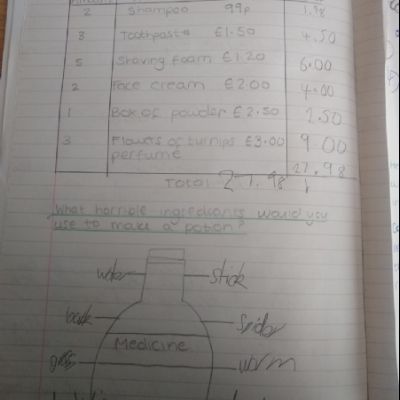 2 Shampoo 99p 1.98
3 Toothpaste £1.50 4.50
5 Shaving foam £1.20 6.00
2 Face cream £2.00 4.00
1 Box of powder £2.50 2.50
3 Flowers of turnips £3.00 9.00
perfume
27.98
Total 27.98
What horrible ingredients would you
use to make a potion?
water stick
spider
Medicine
worm